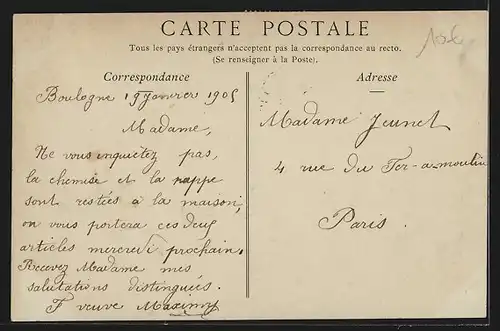 CARTE POSTALE
Tous les pays étrangers n'acceptent pas la correspondance au recto.
(Se renseigner à la Poste).
Correspondance
Boulogne 19 janvier 1905
Madame,
Ne vous inquietez pas,
la chemise et la nappe
sont restées à la maison,
on vous portera ces deux
articles mercredi prochain.
Recevez Madame mes
salutations distinguées.
F veuve Maximy
Adresse
Madame Jeunet
4 rue du Fer-a-moulin
Paris.